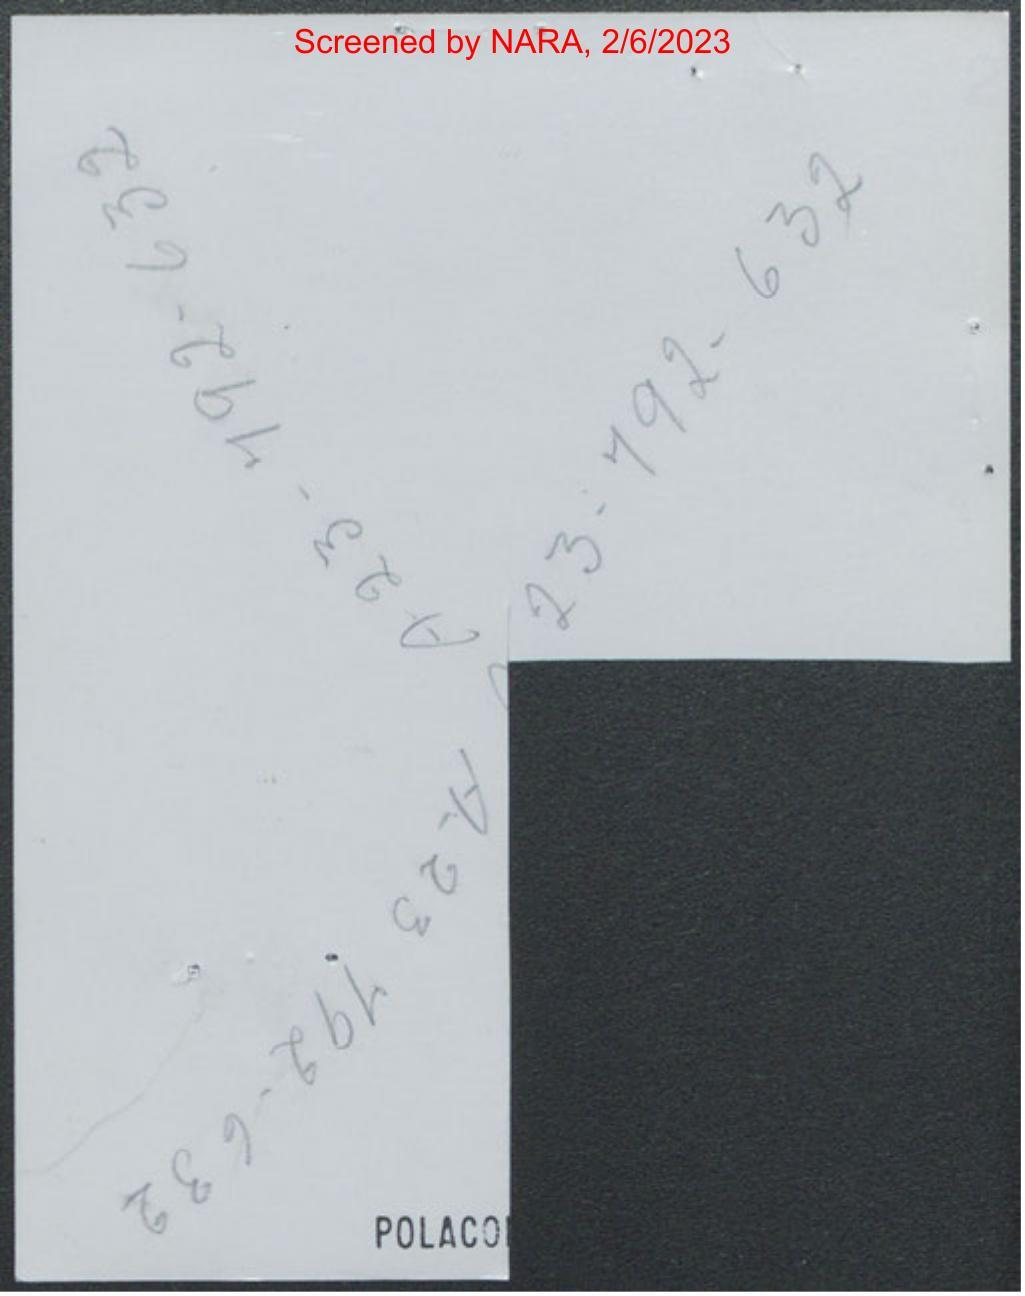 Screened by NARA, 2/6/2023
A 23-792-632
23-792-632
A-23 792-632
POLACO